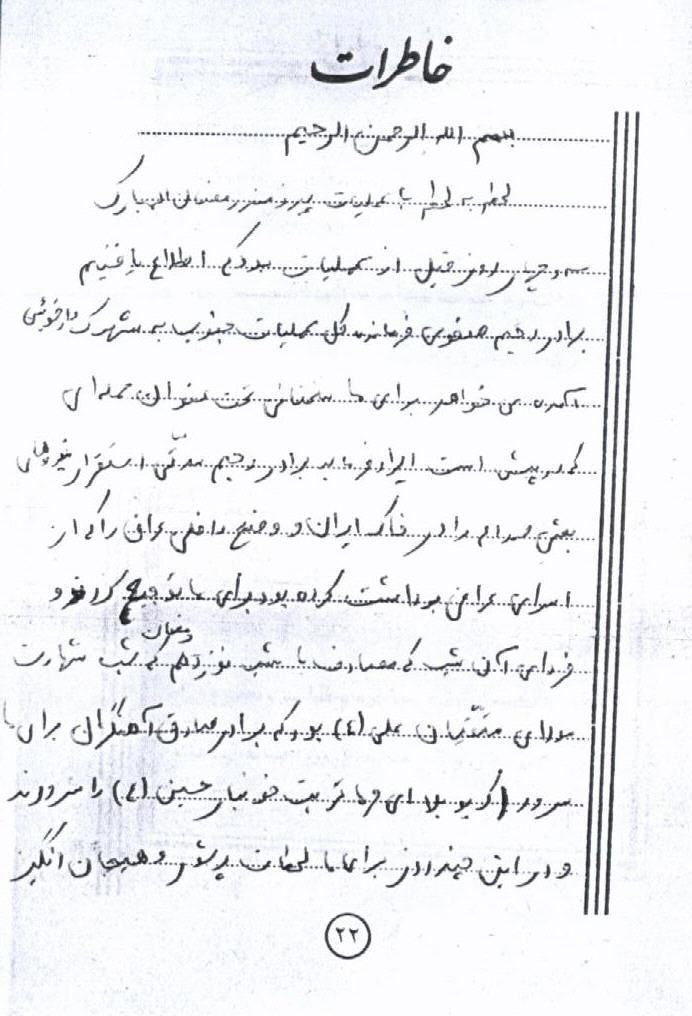 خاطرات
بسم الله الرحمن الرحیم
لحظه به لحظه با عملیات پیروزمند رمضان المبارک
سه روز قبل از عملیات بود که اطلاع یافتیم
برادر رحیم صفوی فرمانده کل عملیات جنوب به شهرک دارخوئین
آمده می خواهد برای ما سخنانی تحت عنوان حمله ای
که در پیش است ایراد فرماید برادر رحیم استقرار نیروهای
بعثی صدام را در خاک ایران و وضع داخلی عراق را که از
اسرای عراقی برداشت کرده بود برای ما توجیح کردند و
فردای آن شب که مصادف با شب نوزدهم رمضان که شب شهادت
مولای متقیان علی (ع) بود که برادر صادق آهنگران برای ما
سرود (کربلا ای خاک تربت خونبار حسین (ع) را سرودند
و در این چند روز برای ما لحظات پرشور و هیجان انگیز
۲۲